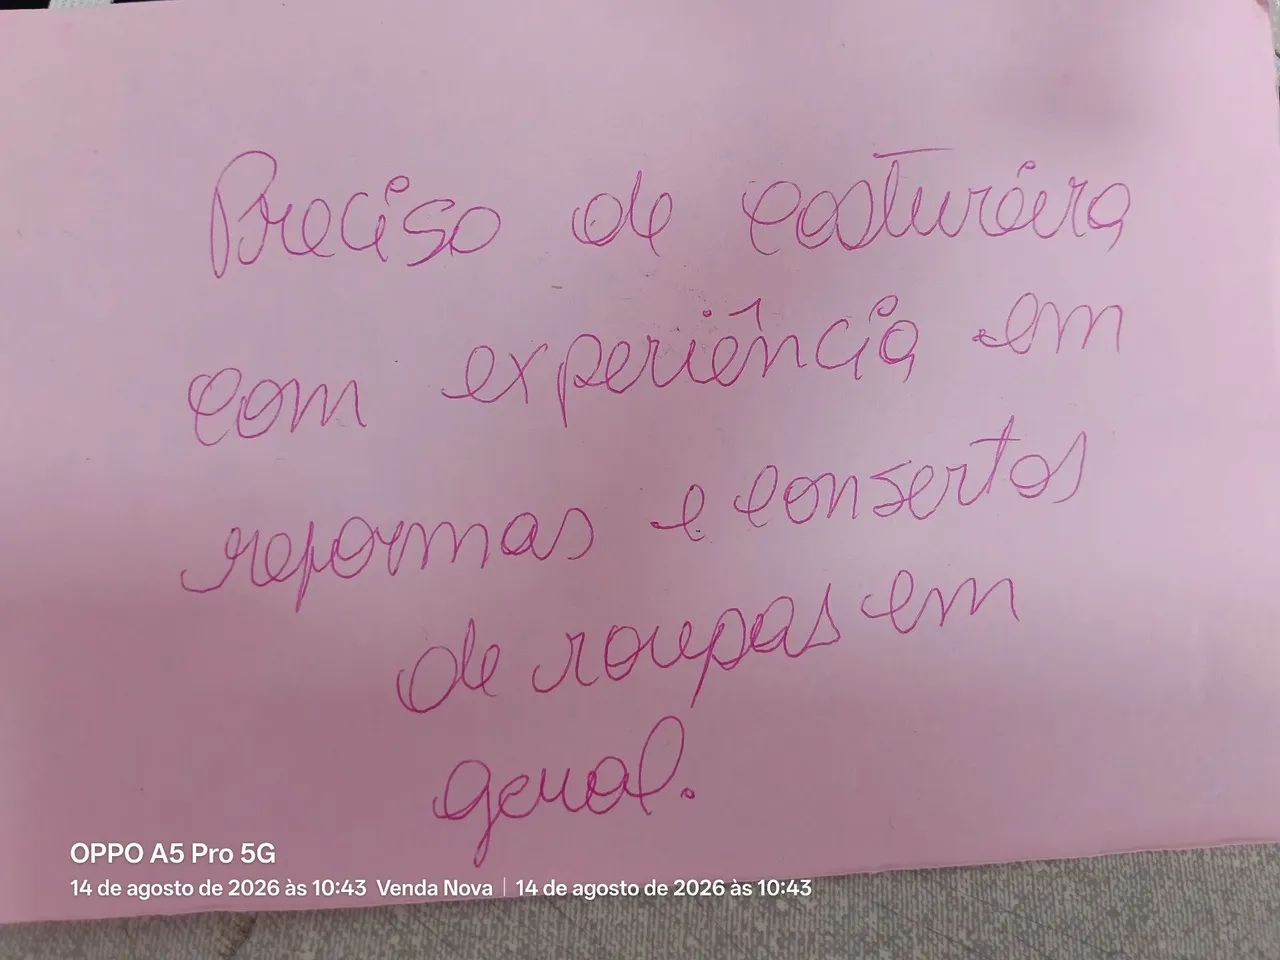 Preciso de costureira
com experiência em
reformas e consertos
de roupas em
geral.
OPPO A5 Pro 5G
14 de agosto de 2026 às 10:43 Venda Nova | 14 de agosto de 2026 às 10:43